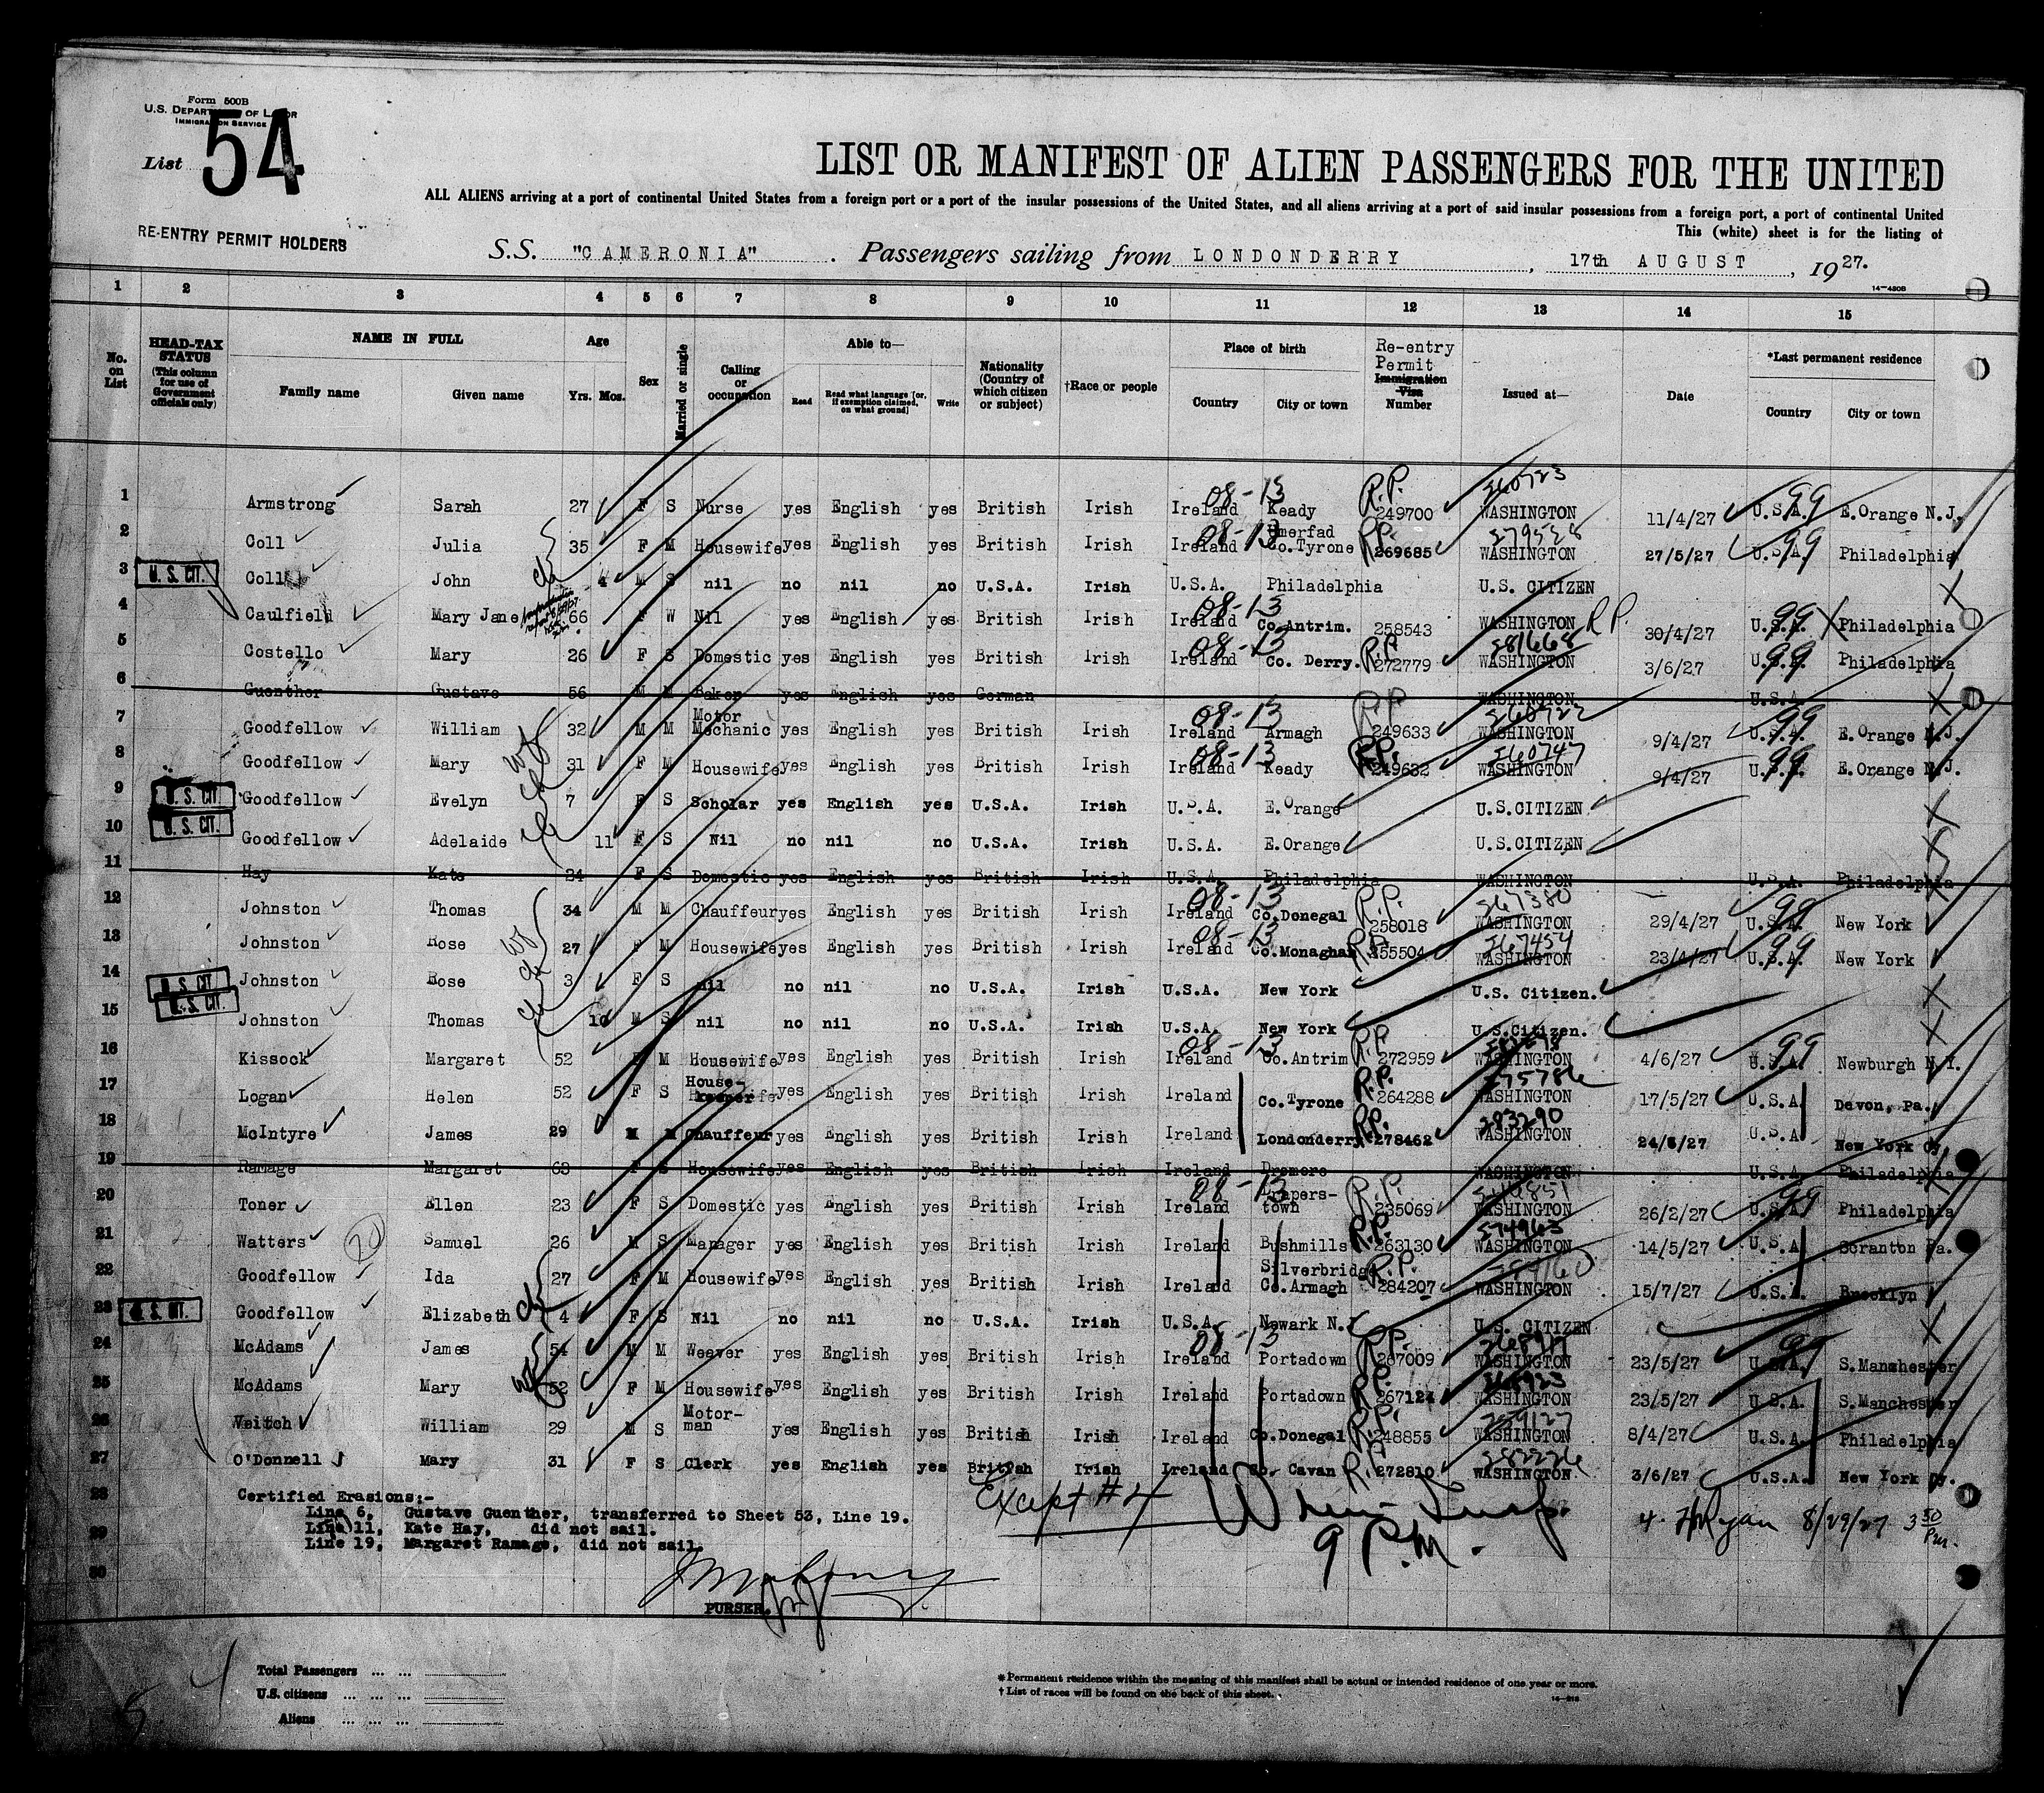 Form 500B
U.S. DEPARTMENT OF LABOR
IMMIGRATION SERVICE
List 54
LIST OR MANIFEST OF ALIEN PASSENGERS FOR THE UNITED
ALL ALIENS arriving at a port of continental United States from a foreign port or a port of the insular possessions of the United States, and all aliens arriving at a port of said insular possessions from a foreign port, a port of continental United
This (white) sheet is for the listing of
RE-ENTRY PERMIT HOLDERS
S.S. "CAMERONIA" . Passengers sailing from LONDONDERRY , 17th AUGUST , 1927.
14-480B
1 2 3 4 5 6 7 8 9 10 11 12 13 14 15
No. on List
HEAD-TAX STATUS (This column for use of Government officials only)
NAME IN FULL Family name Given name
Age Yrs. Mos.
Sex
Married or single
Calling or occupation
Able to— Read Read what language [or, if exemption claimed, on what ground] Write
Nationality (Country of which citizen or subject)
†Race or people
Place of birth Country City or town
Re-entry Permit Immigration Visa Number
Issued at—
Date
*Last permanent residence Country City or town
1 Armstrong Sarah 27 F S Nurse yes English yes British Irish Ireland 08-13 Keady R.P. 249700 260723 WASHINGTON 11/4/27 U.S.A. 99 E.Orange N.J.
2 Coll Julia 35 F M Housewife yes English yes British Irish Ireland 08-13 Co.Tyrone R.P. 269685 WASHINGTON 27/5/27 U.S.A. 99 Philadelphia
3 U.S. CIT. Coll John 4 M S nil no nil no U.S.A. Irish U.S.A. Philadelphia U.S. CITIZEN
4 Caulfield Mary Jane 66 F W Nil yes English yes British Irish Ireland 08-13 Co.Antrim. 258543 WASHINGTON R.P. 30/4/27 U.S.A. 99 Philadelphia
5 Costello Mary 26 F S Domestic yes English yes British Irish Ireland 08-13 Co. Derry. R.P. 272779 281668 WASHINGTON 3/6/27 U.S.A. 99 Philadelphia
6 Guenther Gustave 56 M M Baker yes English yes German WASHINGTON U.S.A.
7 Goodfellow William 32 M M Motor Mechanic yes English yes British Irish Ireland 08-13 Armagh R.P. 249633 260722 WASHINGTON 9/4/27 U.S.A. 99 E.Orange N.J.
8 Goodfellow Mary 31 F M Housewife yes English yes British Irish Ireland 08-13 Keady R.P. 249632 260747 WASHINGTON 9/4/27 U.S.A. 99 E.Orange N.J.
9 U.S. CIT. Goodfellow Evelyn 7 F S Scholar yes English yes U.S.A. Irish U.S.A. E.Orange U.S.CITIZEN
10 U.S. CIT. Goodfellow Adelaide 11 F S Nil no nil no U.S.A. Irish U.S.A. E.Orange U.S.CITIZEN
11 Hay Kate 24 F S Domestic yes English yes British Irish U.S.A. Philadelphia WASHINGTON U.S.A. Philadelphia
12 Johnston Thomas 34 M M Chauffeur yes English yes British Irish Ireland 08-13 Co.Donegal R.P. 258018 267380 WASHINGTON 29/4/27 U.S.A. 99 New York
13 Johnston Rose 27 F M Housewife yes English yes British Irish Ireland 08-13 Co.Monaghan R.P. 255504 267454 WASHINGTON 23/4/27 U.S.A. 99 New York
14 U.S. CIT. Johnston Rose 3 F S nil no nil no U.S.A. Irish U.S.A. New York U.S. Citizen.
15 U.S. CIT. Johnston Thomas 10 M S nil no nil no U.S.A. Irish U.S.A. New York U.S.Citizen.
16 Kissock Margaret 52 F M Housewife yes English yes British Irish Ireland 08-13 Co.Antrim R.P. 272959 WASHINGTON 4/6/27 U.S.A. 99 Newburgh N.Y.
17 Logan Helen 52 F S House-keeper yes English yes British Irish Ireland Co.Tyrone R.P. 264288 275786 WASHINGTON 17/5/27 U.S.A. Devon, Pa.
18 McIntyre James 29 M M Chauffeur yes English yes British Irish Ireland Londonderry R.P. 278462 283290 WASHINGTON 24/6/27 U.S.A. New York Cy.
19 Ramage Margaret 63 F S Housewife yes English yes British Irish Ireland Dromore WASHINGTON U.S.A. Philadelphia
20 Toner Ellen 23 F S Domestic yes English yes British Irish Ireland 08-13 Drapers-town R.P. 235069 246851 WASHINGTON 26/2/27 U.S.A. 99 Philadelphia
21 Watters 20 Samuel 26 M S Manager yes English yes British Irish Ireland Bushmills R.P. 263130 274963 WASHINGTON 14/5/27 U.S.A. Scranton Pa.
22 Goodfellow Ida 27 F M Housewife yes English yes British Irish Ireland Silverbridge Co.Armagh R.P. 284207 WASHINGTON 15/7/27 U.S.A. Brooklyn
23 U.S. CIT. Goodfellow Elizabeth 4 F S Nil no nil no U.S.A. Irish U.S.A. Newark N.J. U.S. CITIZEN
24 McAdams James 54 M M Weaver yes English yes British Irish Ireland 08-13 Portadown R.P. 267009 WASHINGTON 23/5/27 U.S.A. 99 S.Manchester
25 McAdams Mary 52 F M Housewife yes English yes British Irish Ireland Portadown R.P. 267124 WASHINGTON 23/5/27 U.S.A. S.Manchester
26 Veitch William 29 M S Motor-man yes English yes British Irish Ireland Co.Donegal R.P. 248855 259127 WASHINGTON 8/4/27 U.S.A. Philadelphia
27 O'Donnell Mary 31 F S Clerk yes English yes British Irish Ireland Co. Cavan R.P. 272810 282226 WASHINGTON 3/6/27 U.S.A. New York Cy.
28 Certified Erasions:-
Line 6, Gustave Guenther, transferred to Sheet 53, Line 19.
29 Line 11, Kate Hay, did not sail.
Line 19, Margaret Ramage, did not sail.
30
Except #4
9 P.M.
4. HRyan 8/29/27 3 30 Pm.
PURSER.
Total Passengers ... ...
U.S. citizens ... ... ...
Aliens ... ... ...
*Permanent residence within the meaning of this manifest shall be actual or intended residence of one year or more.
†List of races will be found on the back of this sheet.